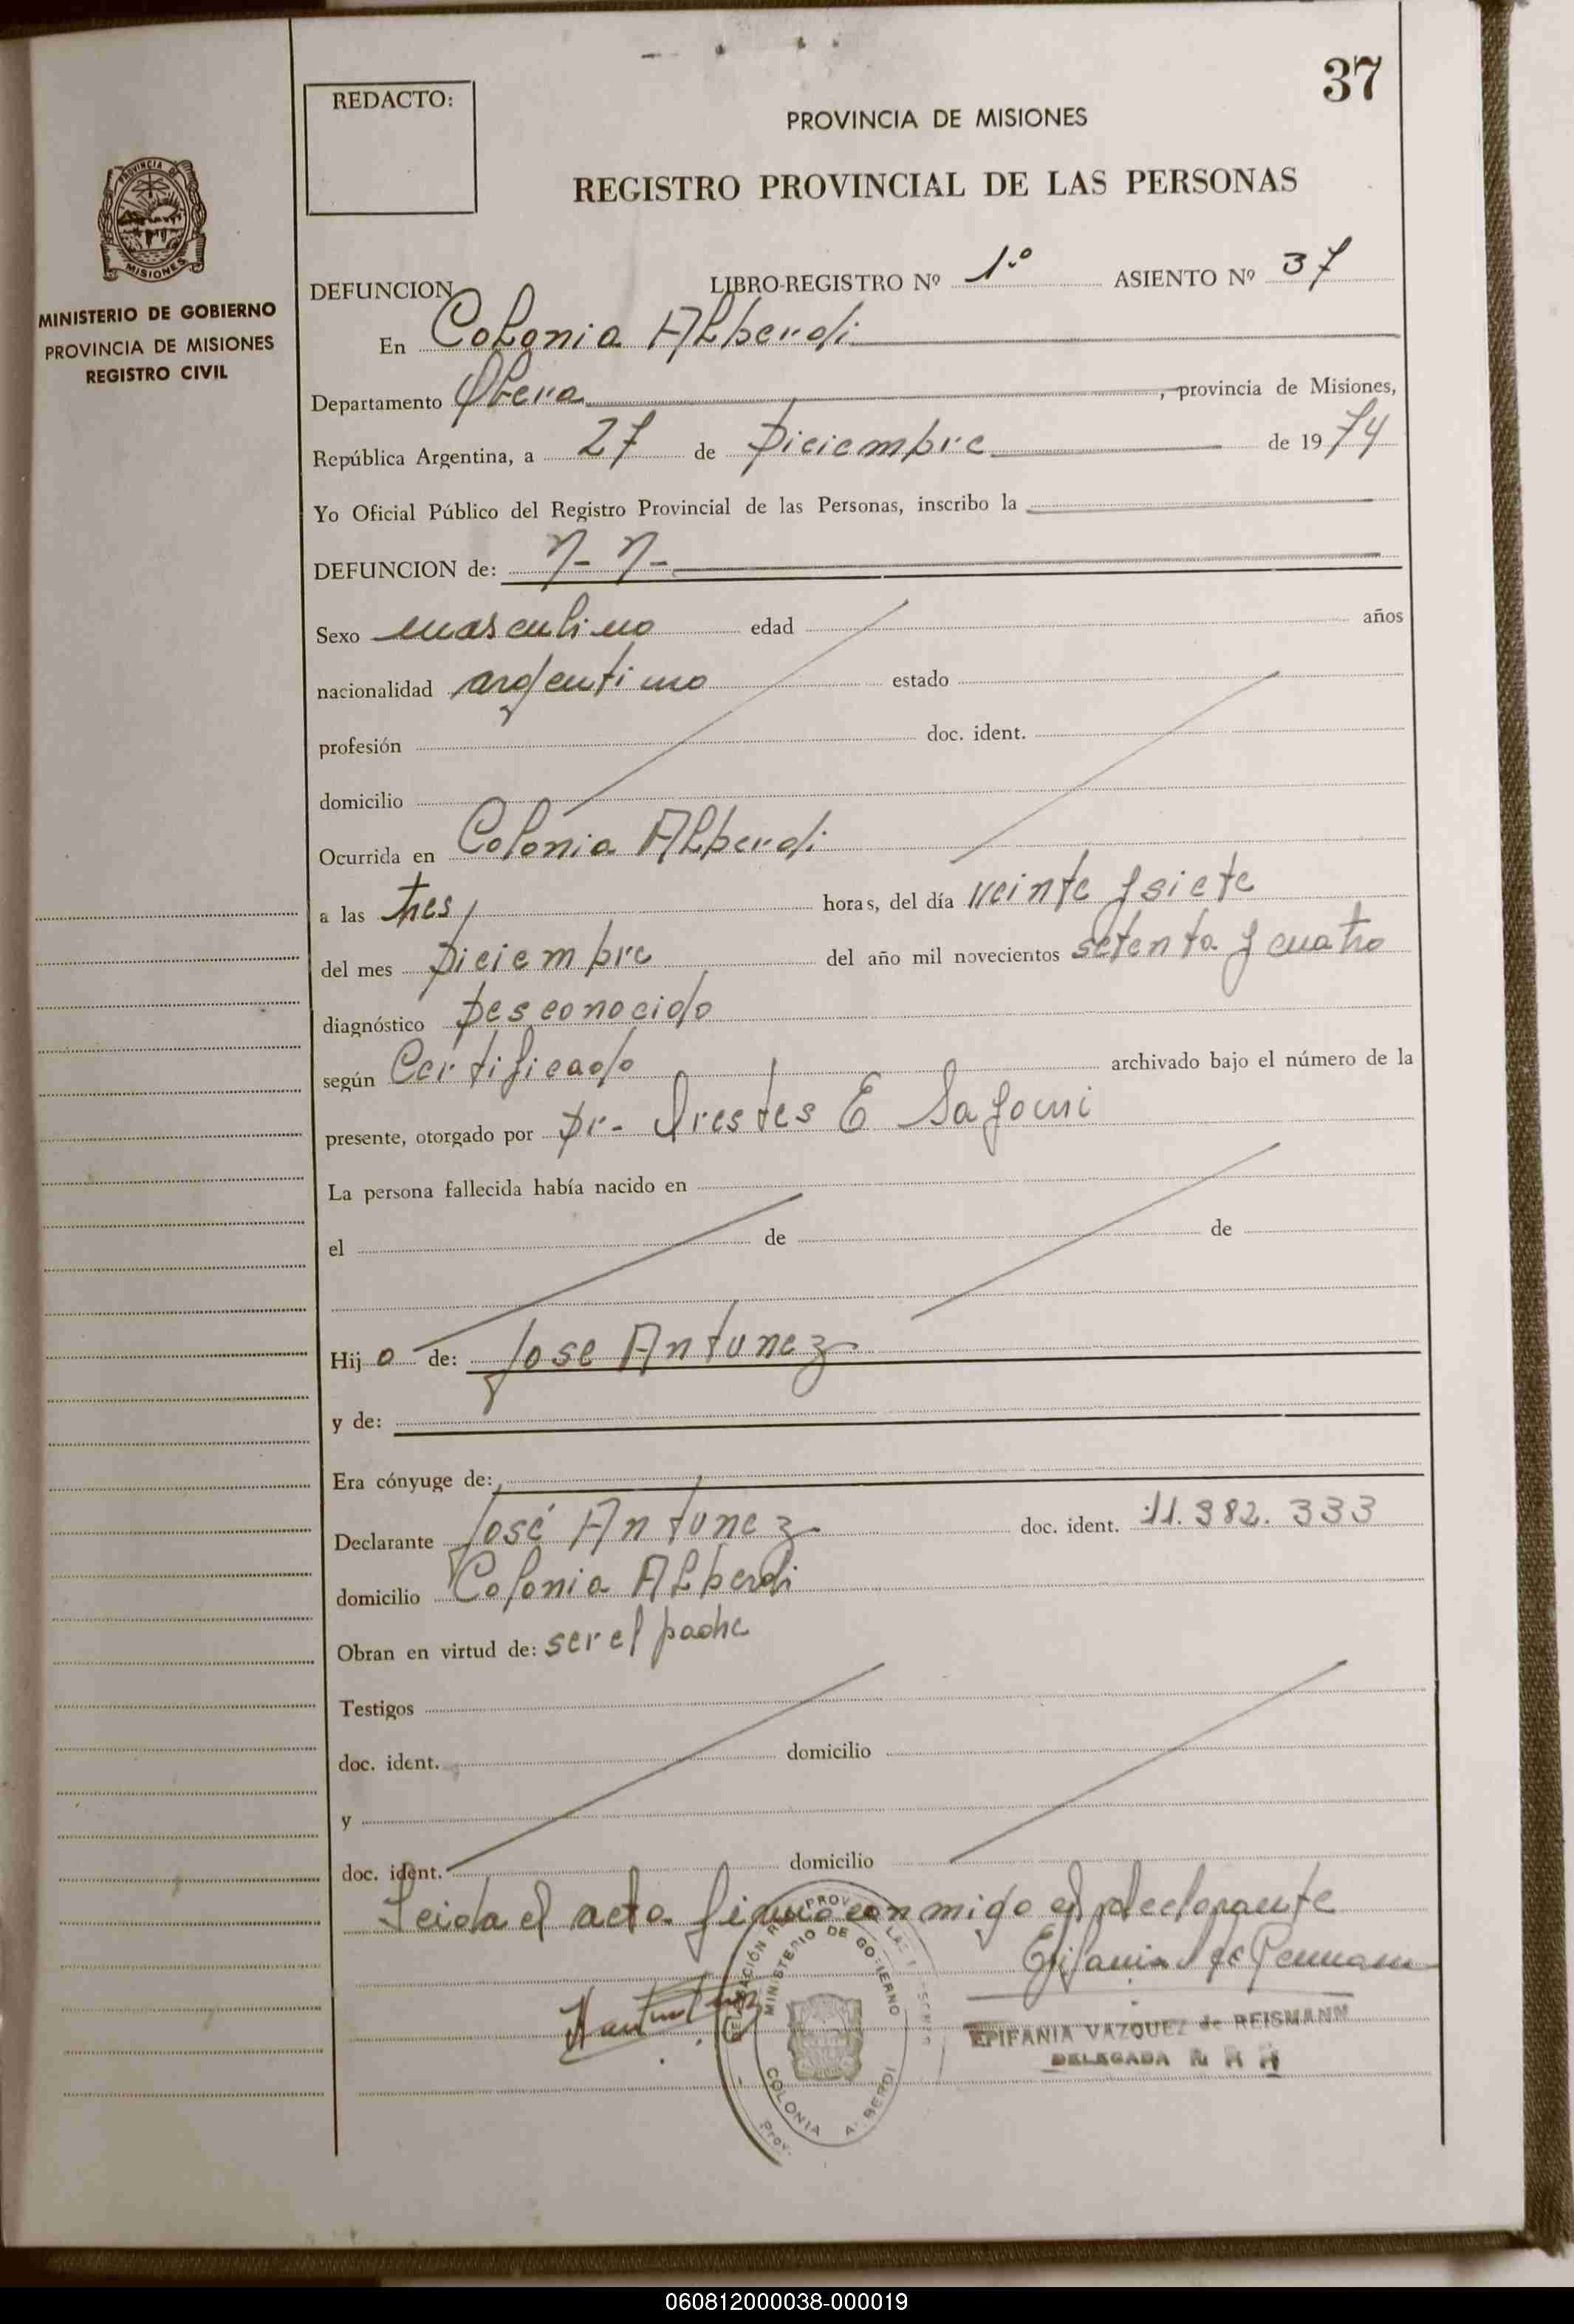 37
REDACTO:
PROVINCIA DE MISIONES
REGISTRO PROVINCIAL DE LAS PERSONAS
PROVINCIA DE
MISIONES
MINISTERIO DE GOBIERNO
PROVINCIA DE MISIONES
REGISTRO CIVIL
DEFUNCION LIBRO-REGISTRO Nº 1.º ASIENTO Nº 37
En Colonia Alberdi
Departamento Obera, provincia de Misiones,
República Argentina, a 27 de Diciembre de 1974
Yo Oficial Público del Registro Provincial de las Personas, inscribo la
DEFUNCION de: N- N-
Sexo masculino edad años
nacionalidad argentino estado
profesión doc. ident.
domicilio
Ocurrida en Colonia Alberdi
a las tres horas, del día veinte y siete
del mes Diciembre del año mil novecientos setenta y cuatro
diagnóstico Desconocido
según Certificado archivado bajo el número de la
presente, otorgado por Dr- Orestes E
La persona fallecida había nacido en
el de de
Hijo de: Jose Antunez
y de:
Era cónyuge de:
Declarante José Antunez doc. ident. 11.382.333
domicilio Colonia Alberdi
Obran en virtud de: ser el padre
Testigos
doc. ident. domicilio
y
doc. ident. domicilio
Leida el acta firmo conmigo el declarante
MINISTERIO DE GOBIERNO
COLONIA ALBERDI
Prov.
EPIFANIA VAZQUEZ de REISMANN
DELEGADA
060812000038-000019